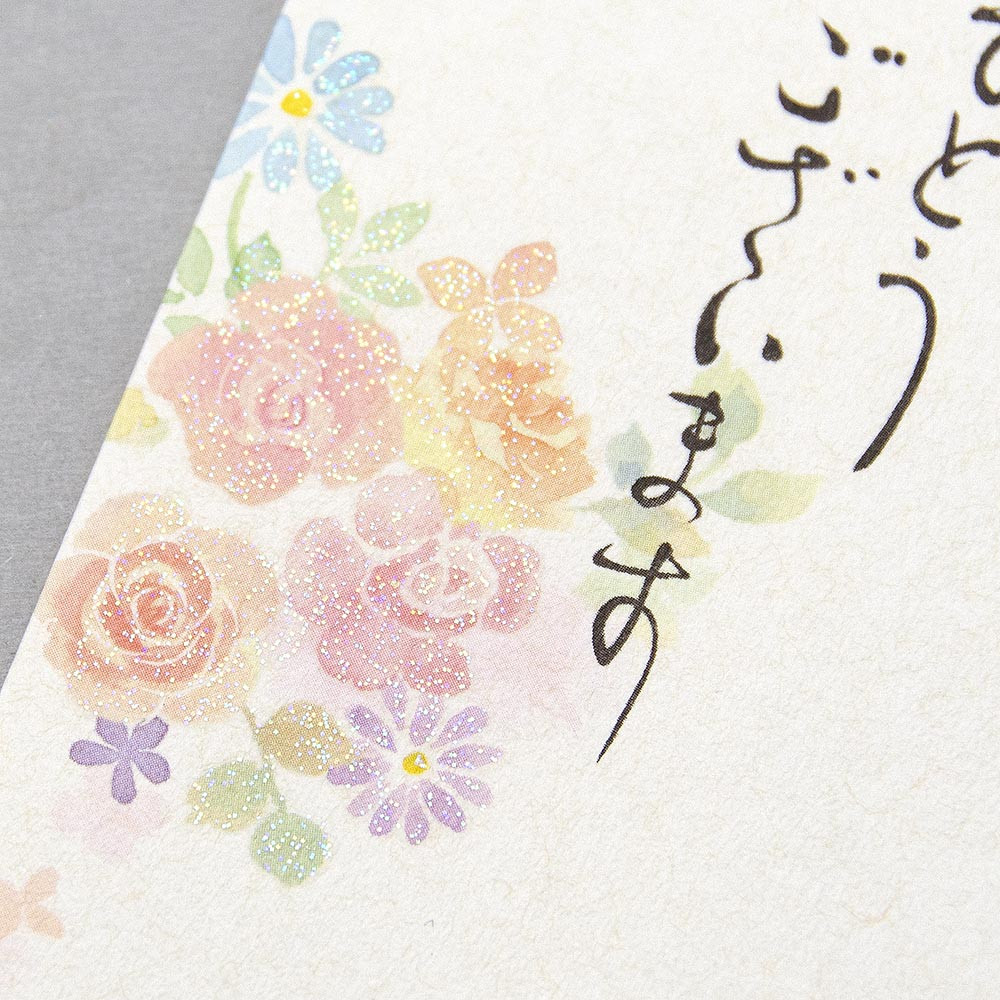 とう
ございます